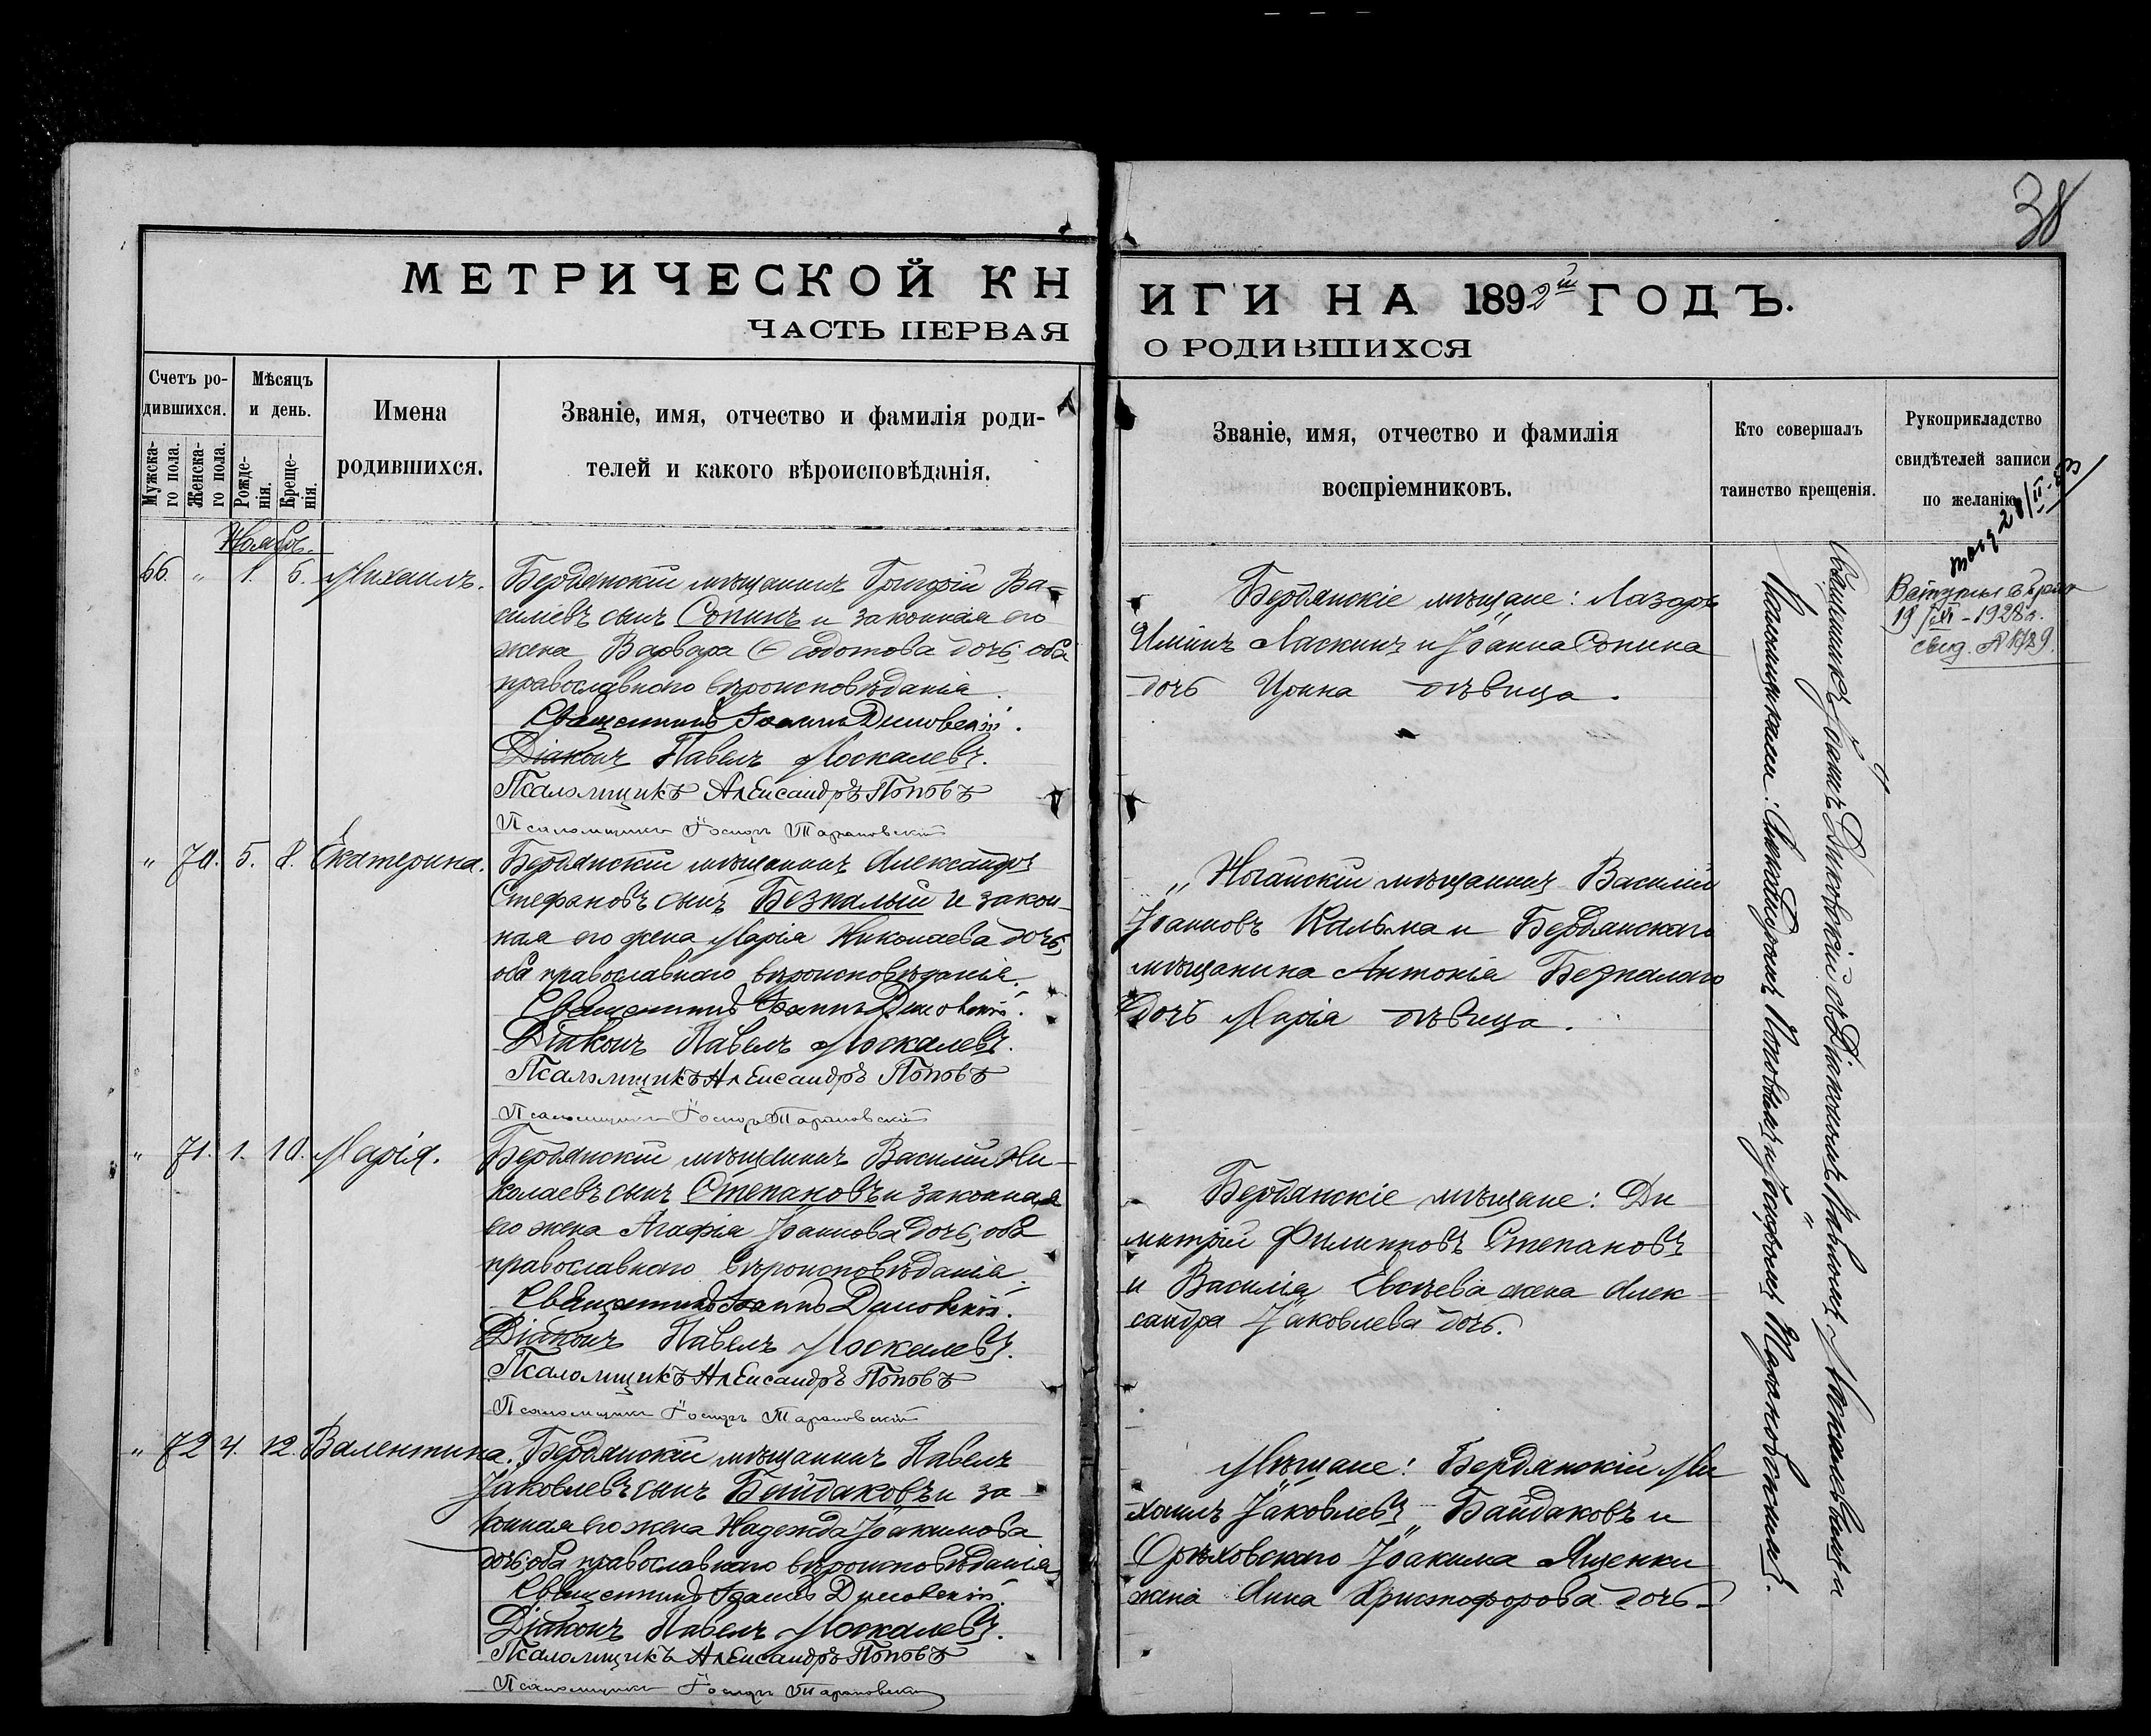 38
МЕТРИЧЕСКОЙ КН
ИГИ НА 1892й ГОДЪ.
ЧАСТЬ ПЕРВАЯ
О РОДИВШИХСЯ
Счетъ ро-
дившихся.
Мужска-
го пола.
Женска-
го пола.
Мѣсяцъ
и день.
Рожде-
нія.
Креще-
нія.
Имена
родившихся.
Званіе, имя, отчество и фамилія роди-
телей и какого вѣроисповѣданія.
Званіе, имя, отчество и фамилія
воспріемниковъ.
Кто совершалъ
таинство крещенія.
Рукоприкладство
свидѣтелей записи
по желанію
Ноябрь.
66. " 1. 6. Михаилъ.
Бердянскій мѣщанинъ Григорій Ва-
силіевъ сынъ Сопинъ и законная его
жена Варвара Ѳеодотова дочь; оба
православнаго вѣроисповѣданія.
Священникъ Іоаннъ
Діаконъ Павелъ Москалевъ.
Псаломщикъ Александръ Поповъ
Псаломщикъ Іосифъ Тарановскій
Бердянскіе мѣщане: Лазарь
Ильинъ Ласкинъ и Іоанна Сопина
дочь Ирина дѣвица.
19/XI-1928г.
" 70. 5. 8. Екатерина.
Бердянскій мѣщанинъ Александръ
Стефановъ сынъ Безналый и закон-
ная его жена Марія Николаева дочь,
оба православнаго вѣроисповѣданія.
Священникъ Іоаннъ
Діаконъ Павелъ Москалевъ.
Псаломщикъ Александръ Поповъ
Псаломщикъ Іосифъ Тарановскій
Ногайскій мѣщанинъ Василій
Іоанновъ Кальма и Бердянскаго
мѣщанина Антонія Безналаго
дочь Марія дѣвица.
" 71. 1. 10. Марія.
Бердянскій мѣщанинъ Василій Ни-
колаевъ сынъ Степановъ и законная
его жена Агафія Іоаннова дочь, оба
православнаго вѣроисповѣданія.
Священникъ Іоаннъ
Діаконъ Павелъ Москалевъ.
Псаломщикъ Александръ Поповъ
Псаломщикъ Іосифъ Тарановскій
Бердянскіе мѣщане: Ди
митрій Филипповъ Степановъ
и Василія жена Алек-
сандра Іаковлева дочь.
" 72 4. 12. Валентина.
Бердянскій мѣщанинъ Павелъ
Іаковлевъ сынъ Байдаковъ и за-
конная его жена Надежда Іоакимова
дочь; оба православнаго вѣроисповѣданія
Священникъ Іоаннъ
Діаконъ Павелъ Москалевъ.
Псаломщикъ Александръ Поповъ
Псаломщикъ Іосифъ Тарановскій
Мѣщане: Бердянскій Ми
хаилъ Іаковлевъ Байдаковъ и
Орѣховскаго Іоакима Яценки
жена Анна Христофорова дочь
Священникъ Іоаннъ съ Діакономъ Павломъ Москалевымъ и
Псаломщиками: Александромъ Поповымъ и Іосифомъ Тарановскимъ.